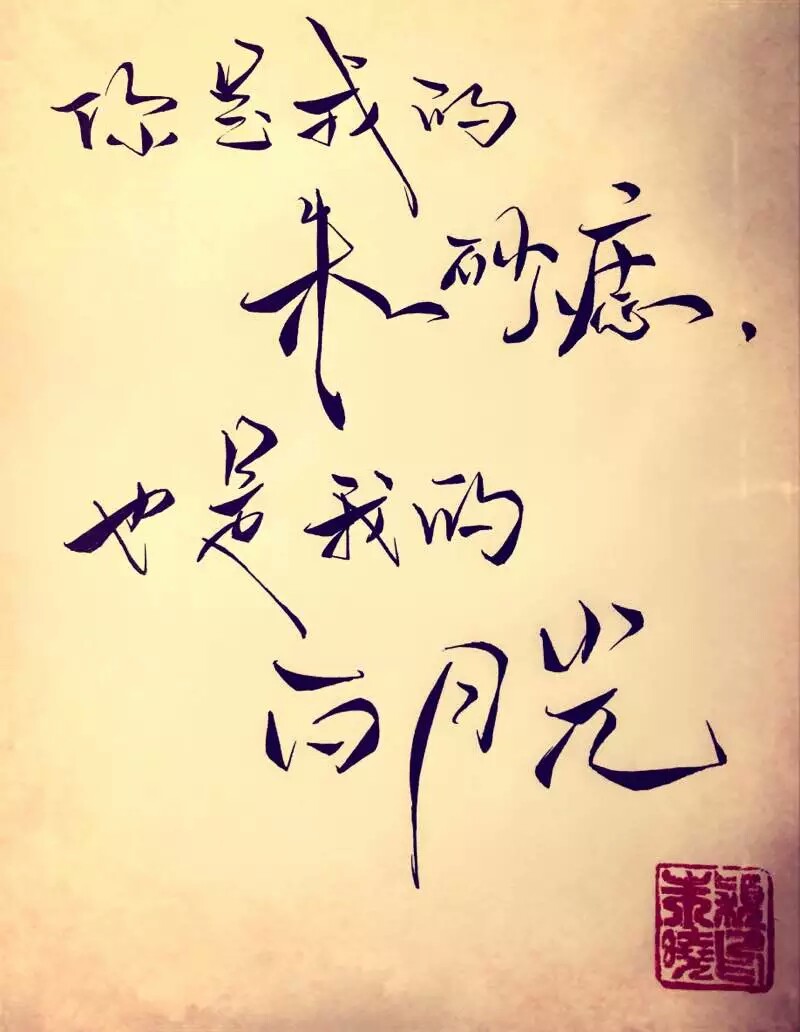 你是我的
朱砂痣，
也是我的
白月光